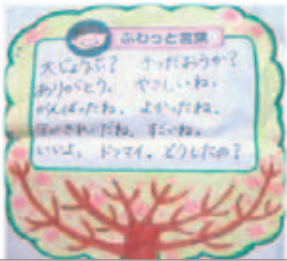 ふわっと言葉
大じょうぶ？ 手つだおうか？
ありがとう。 やさしいね。
がんばったね。 よかったね。
すごいね。
いいよ。 ドンマイ。 どうしたの？